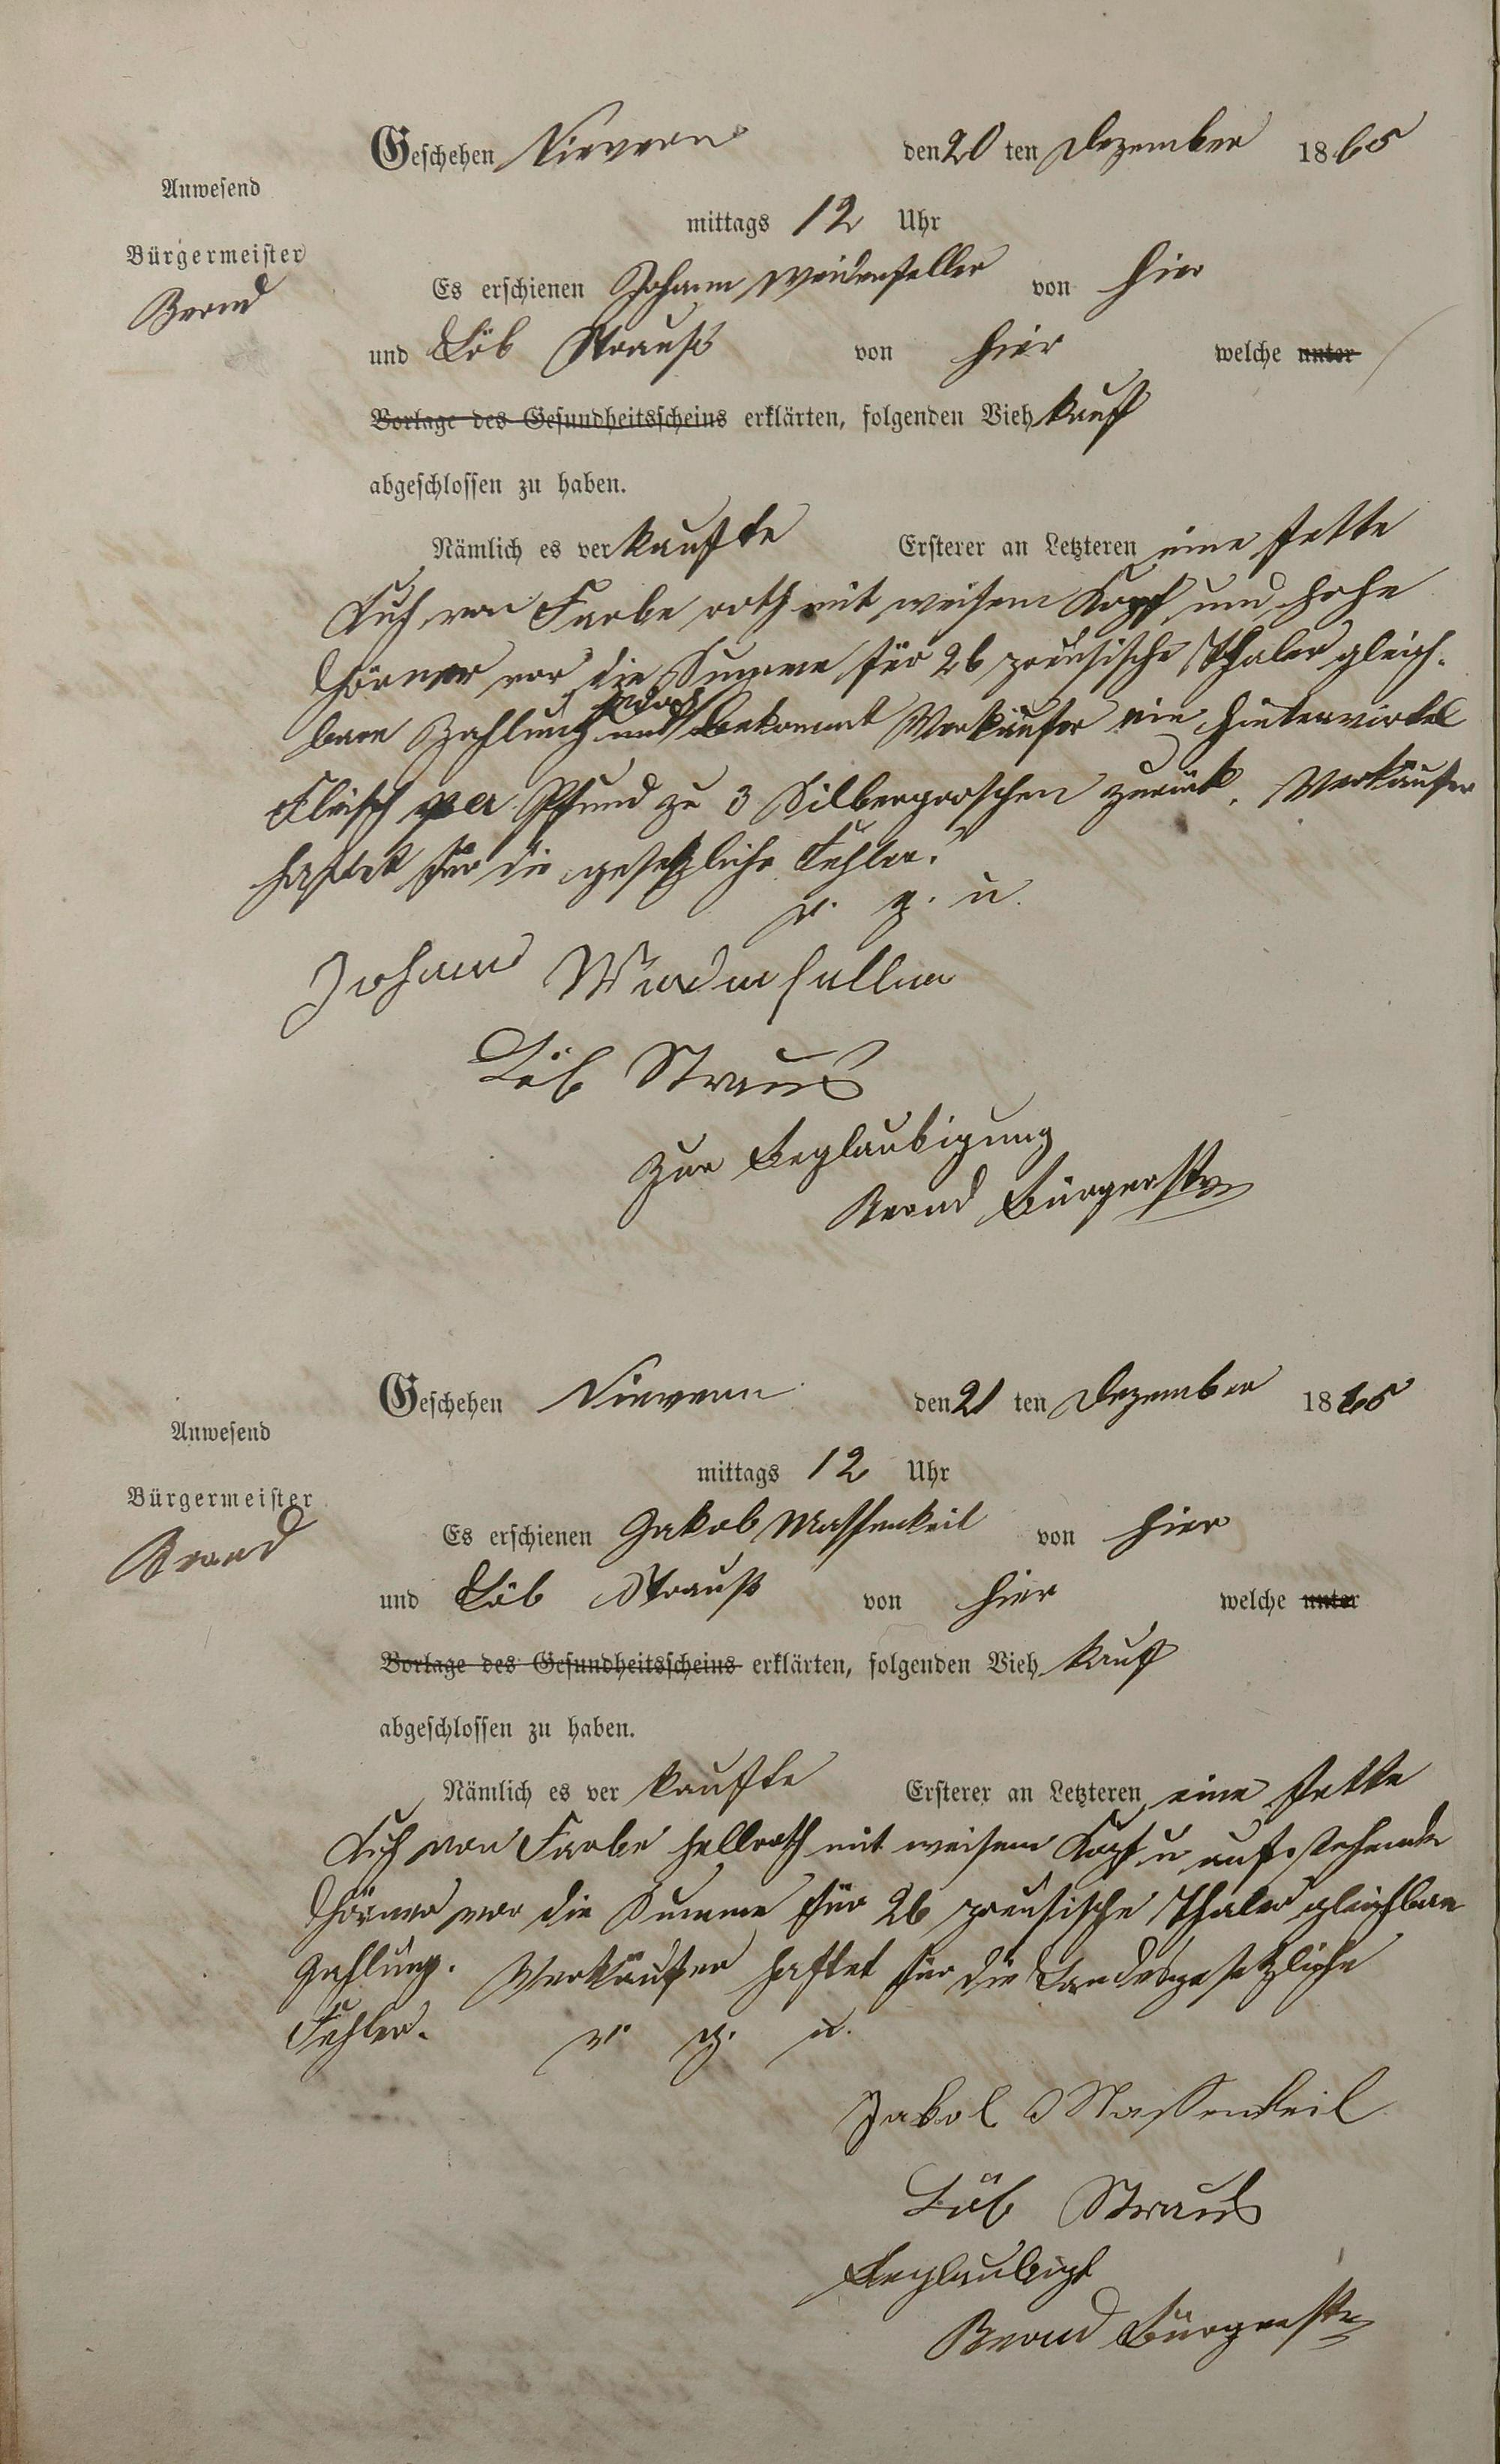 Geschehen Nievern den 20 ten Dezember 1865
Anwesend
mittags 12 Uhr
Bürgermeister
Bernd
Es erschienen Johann Weidenfeller von hier
und Löb Strauß von hier welche unter
Vorlage des Gesundheitsscheins erklärten, folgenden Vieh kauf
abgeschlossen zu haben.
Nämlich es verkaufte Ersterer an Letzteren eine fette
Kuh von Farbe roth mit weisem Kopf und hohe
Hörner vor die Summe für 26 preusische Thaler gleich
bare Zahlung und bekommt Verkäufer ein Hintervirtel
Fleisch per Pfund zu 3 Silbergroschen zurück. Verkäufer
haftet für die gesetzliche Fehler.
v. g. u.
Johann Weidenfeller
Löb Straus
Zur Beglaubigung
Bernd Bürgermstr
Geschehen Nievern den 21 ten Dezember 1865
Anwesend
mittags 12 Uhr
Bürgermeister
Bernd
Es erschienen Jakob Massenkeil von hier
und Löb Strauß von hier welche unter
Vorlage des Gesundheitsscheins erklärten, folgenden Vieh kauf
abgeschlossen zu haben.
Nämlich es ver kaufte Ersterer an Letzteren eine fette
Kuh von Farbe hellroth mit weisem Kopf u aufstehende
Hörner vor die Summe für 26 preusische Thaler gleichbare
Zahlung. Verkäufer haftet für die Landesgesetzliche
Fehler. v. g. u.
Jakob Massenkeil
Löb Straus
Beglaubigt
Bernd Bürgermstr